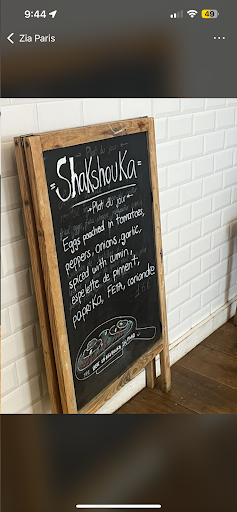 9:44
49
Zia Paris
Plat du jour
=Shakshouka=
-Plat du jour-
Eggs poached in tomatoes,
peppers, onions, garlic,
spiced with cumin,
espelette de piment,
paprika, FETA, coriandre